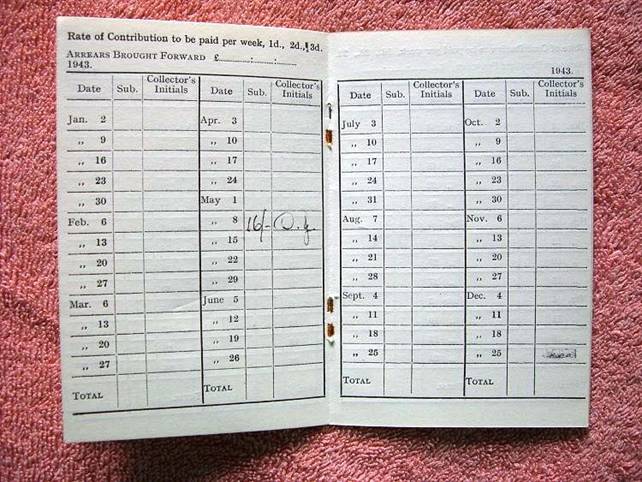 Rate of Contribution to be paid per week, 1d., 2d., 3d.
ARREARS BROUGHT FORWARD £ : :
1943.
Date Sub. Collector's Initials Date Sub. Collector's Initials
Jan. 2 Apr. 3
„ 9 „ 10
„ 16 „ 17
„ 23 „ 24
„ 30 May 1
Feb. 6 „ 8 16/-
„ 13 „ 15
„ 20 „ 22
„ 27 „ 29
Mar. 6 June 5
„ 13 „ 12
„ 20 „ 19
„ 27 „ 26
TOTAL TOTAL
1943.
Date Sub. Collector's Initials Date Sub. Collector's Initials
July 3 Oct. 2
„ 10 „ 9
„ 17 „ 16
„ 24 „ 23
„ 31 „ 30
Aug. 7 Nov. 6
„ 14 „ 13
„ 21 „ 20
„ 28 „ 27
Sept. 4 Dec. 4
„ 11 „ 11
„ 18 „ 18
„ 25 „ 25
TOTAL TOTAL